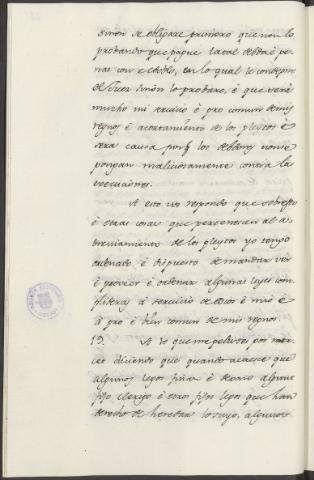 sinon se obligare primero que non lo
probando que pague la tal debda é pe
nas con el doblo, en lo qual lo condepne
el Juez sinon lo probare, é que será
mucho mi servicio é pro comun de mis
regnos é acortamiento de los pleytos é
será causa porq los debdores non se
pongan maliciosamente contra las
execuciones.
A esto vos respondo que sobresto
é otras cosas que pertenescen al a-
breviamiento de los pleytos yo tengo
ordenado é dispuesto de mandar ver
é proveer é ordenar algunas leyes con-
plideras á servicio de Dios é mio é
á pro é bien comun de mis regnos.
19. A lo que me pedistes por mer-
cet diciendo que quando acaesce que
algunos legos finan é dexan algun
fijo clerigo é otros fijos legos que han
derecho de heredar lo suyo, algunos